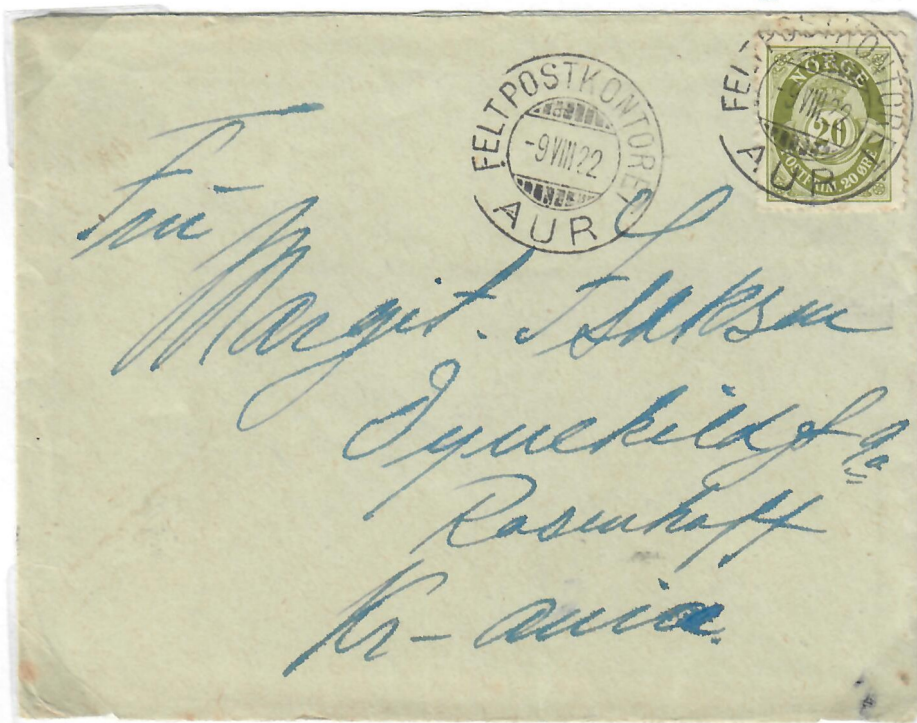 FELTPOSTKONTORET
-9 VIII 22
AUR
FELTPOSTKONTORET
-9 VIII 22
AUR
NORGE
20
POSTFRIM. 20 ØRE
Fru
Margit. Isaksen
Dynekildgt 9a
Rosenhoff
Kr-ania